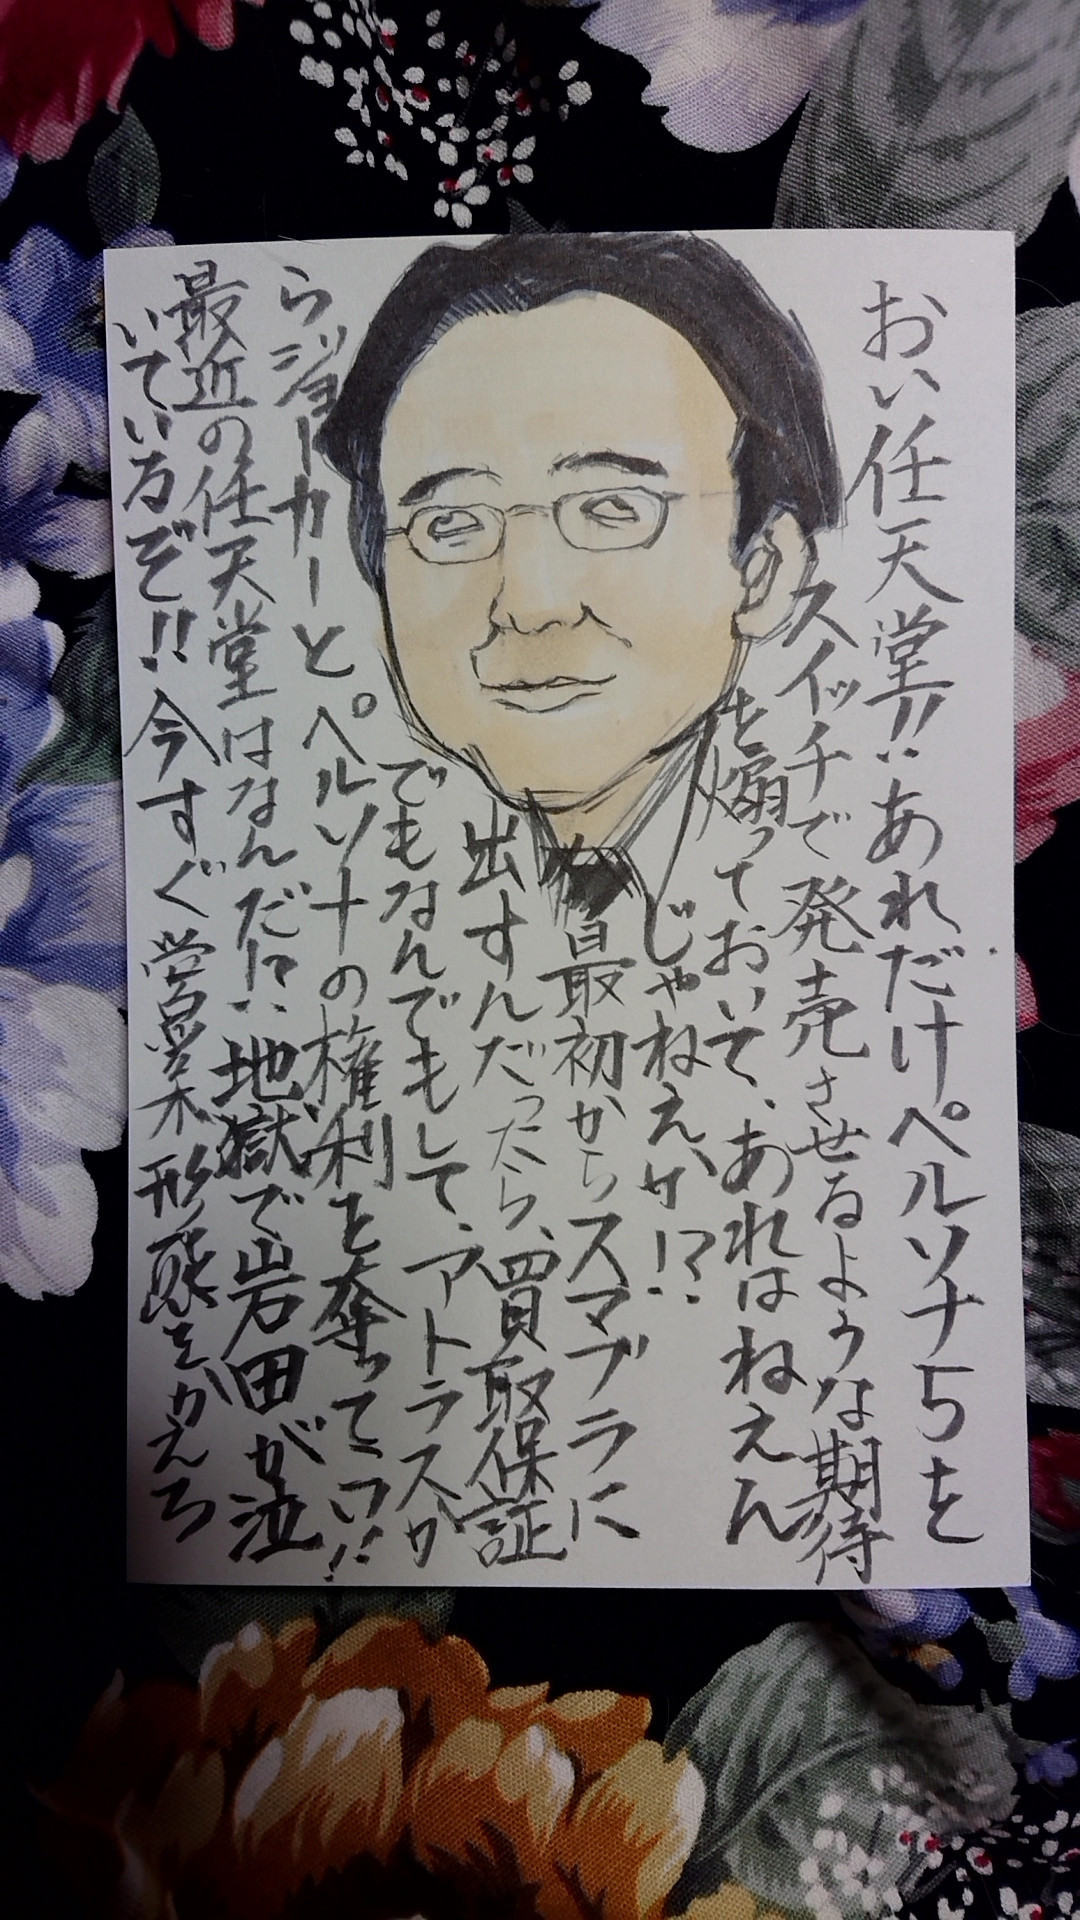 おい任天堂!!あれだけペルソナ5を
スイッチで発売させるような期待
を煽っておいて、あれはねえん
じゃねえか!?
最初からスマブラに
出すんだったら、買取保証
でもなんでもして、アトラスか
らジョーカーとペルソナの権利を奪ってこい!!
最近の任天堂はなんだ!?地獄で岩田が泣
いている方ぞ!!今すぐ営業形態をかえろ